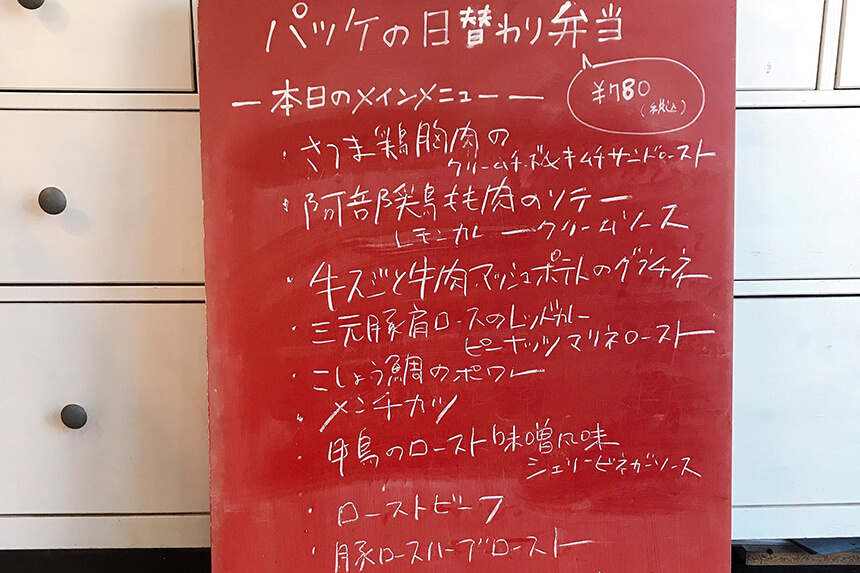 パッケの日替わり弁当
¥780
(税込)
ー本日のメインメニューー
・さつま鶏胸肉の
クリームチーズ&キムチサンドロースト
・阿部鶏もも肉のソテー
レモンカレークリームソース
・牛スジと牛肉マッシュポテトのグラチネ
・三元豚肩ロースのレッドカレー
ピーナッツマリネロースト
・こしょう鯛のポワレ
・メンチカツ
・鴨のロースト味噌風味
シェリービネガーソース
・ローストビーフ
・豚ロースハーブロースト